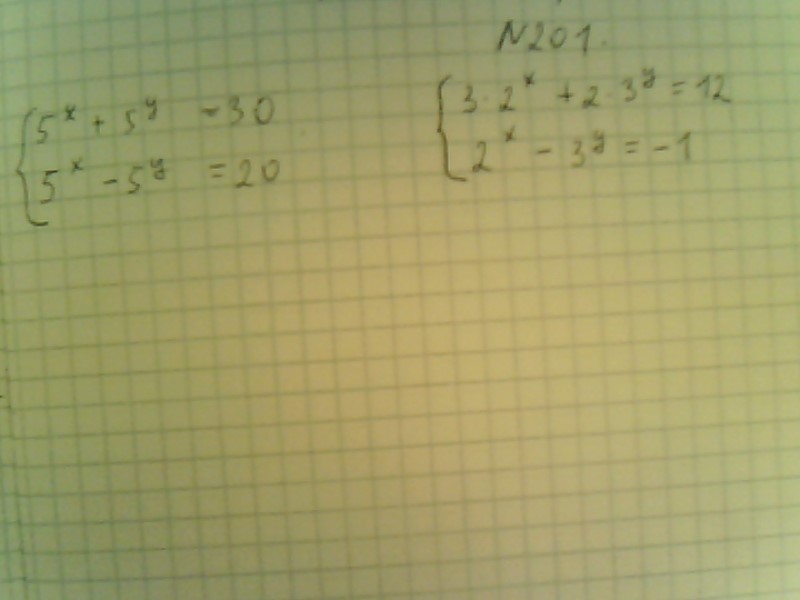 N201.
5^x + 5^y = 30
5^x - 5^y = 20
3·2^x + 2·3^y = 12
2^x - 3^y = -1